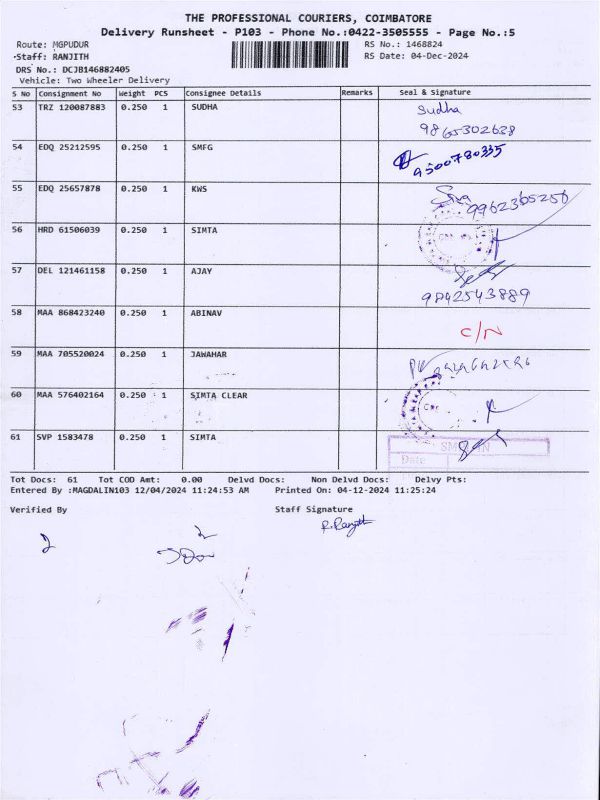 THE PROFESSIONAL COURIERS, COIMBATORE
Delivery Runsheet - P103 - Phone No.:0422-3505555 - Page No.:5
Route: MGPUDUR RS No.: 1468824
Staff: RANJITH RS Date: 04-Dec-2024
DRS No.: DCJB146882405
Vehicle: Two Wheeler Delivery
S No Consignment No Weight PCS Consignee Details Remarks Seal & Signature
53 TRZ 120087883 0.250 1 SUDHA Sudha
9865302638
54 EDQ 25212595 0.250 1 SMFG 9500780335
55 EDQ 25657878 0.250 1 KWS Siva 9962365256
56 HRD 61506039 0.250 1 SIMTA
57 DEL 121461158 0.250 1 AJAY
9842543889
58 MAA 868423240 0.250 1 ABINAV C/N
59 MAA 705520024 0.250 1 JAWAHAR
60 MAA 576402164 0.250 1 SIMTA CLEAR
61 SVP 1583478 0.250 1 SIMTA
Date
Tot Docs: 61 Tot COD Amt: 0.00 Delvd Docs: Non Delvd Docs: Delvy Pts:
Entered By :MAGDALIN103 12/04/2024 11:24:53 AM Printed On: 04-12-2024 11:25:24
Verified By Staff Signature
R. Ranjith